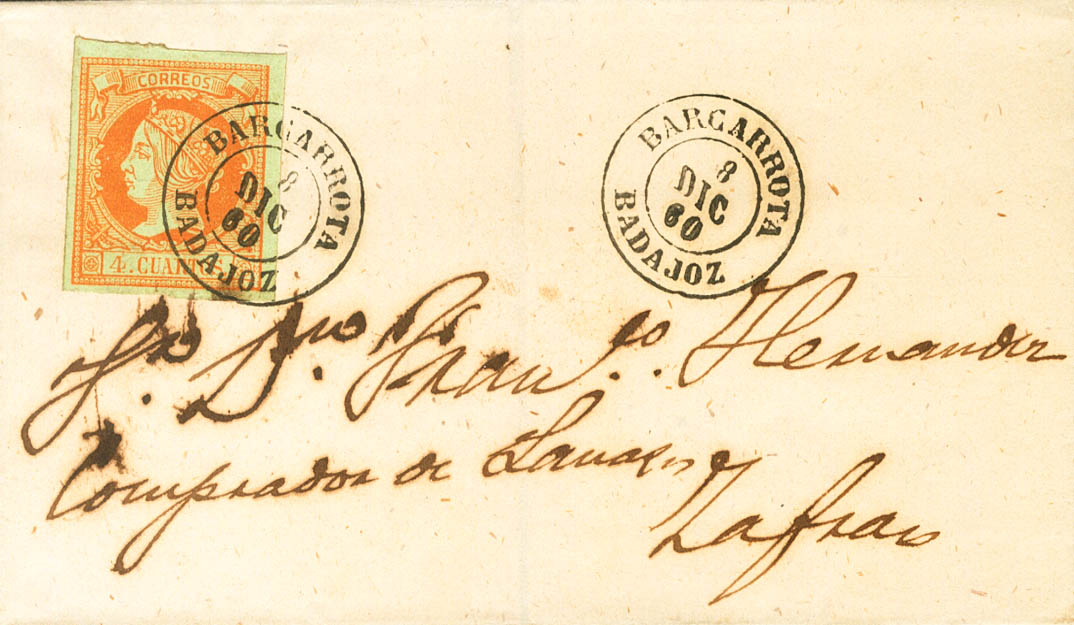 CORREOS
4. CUARTOS
BARCARROTA
8
DIC
60
BADAJOZ
BARCARROTA
8
DIC
60
BADAJOZ
Sr. Dn. Franco. Hernandez
Comprador de
Zafra